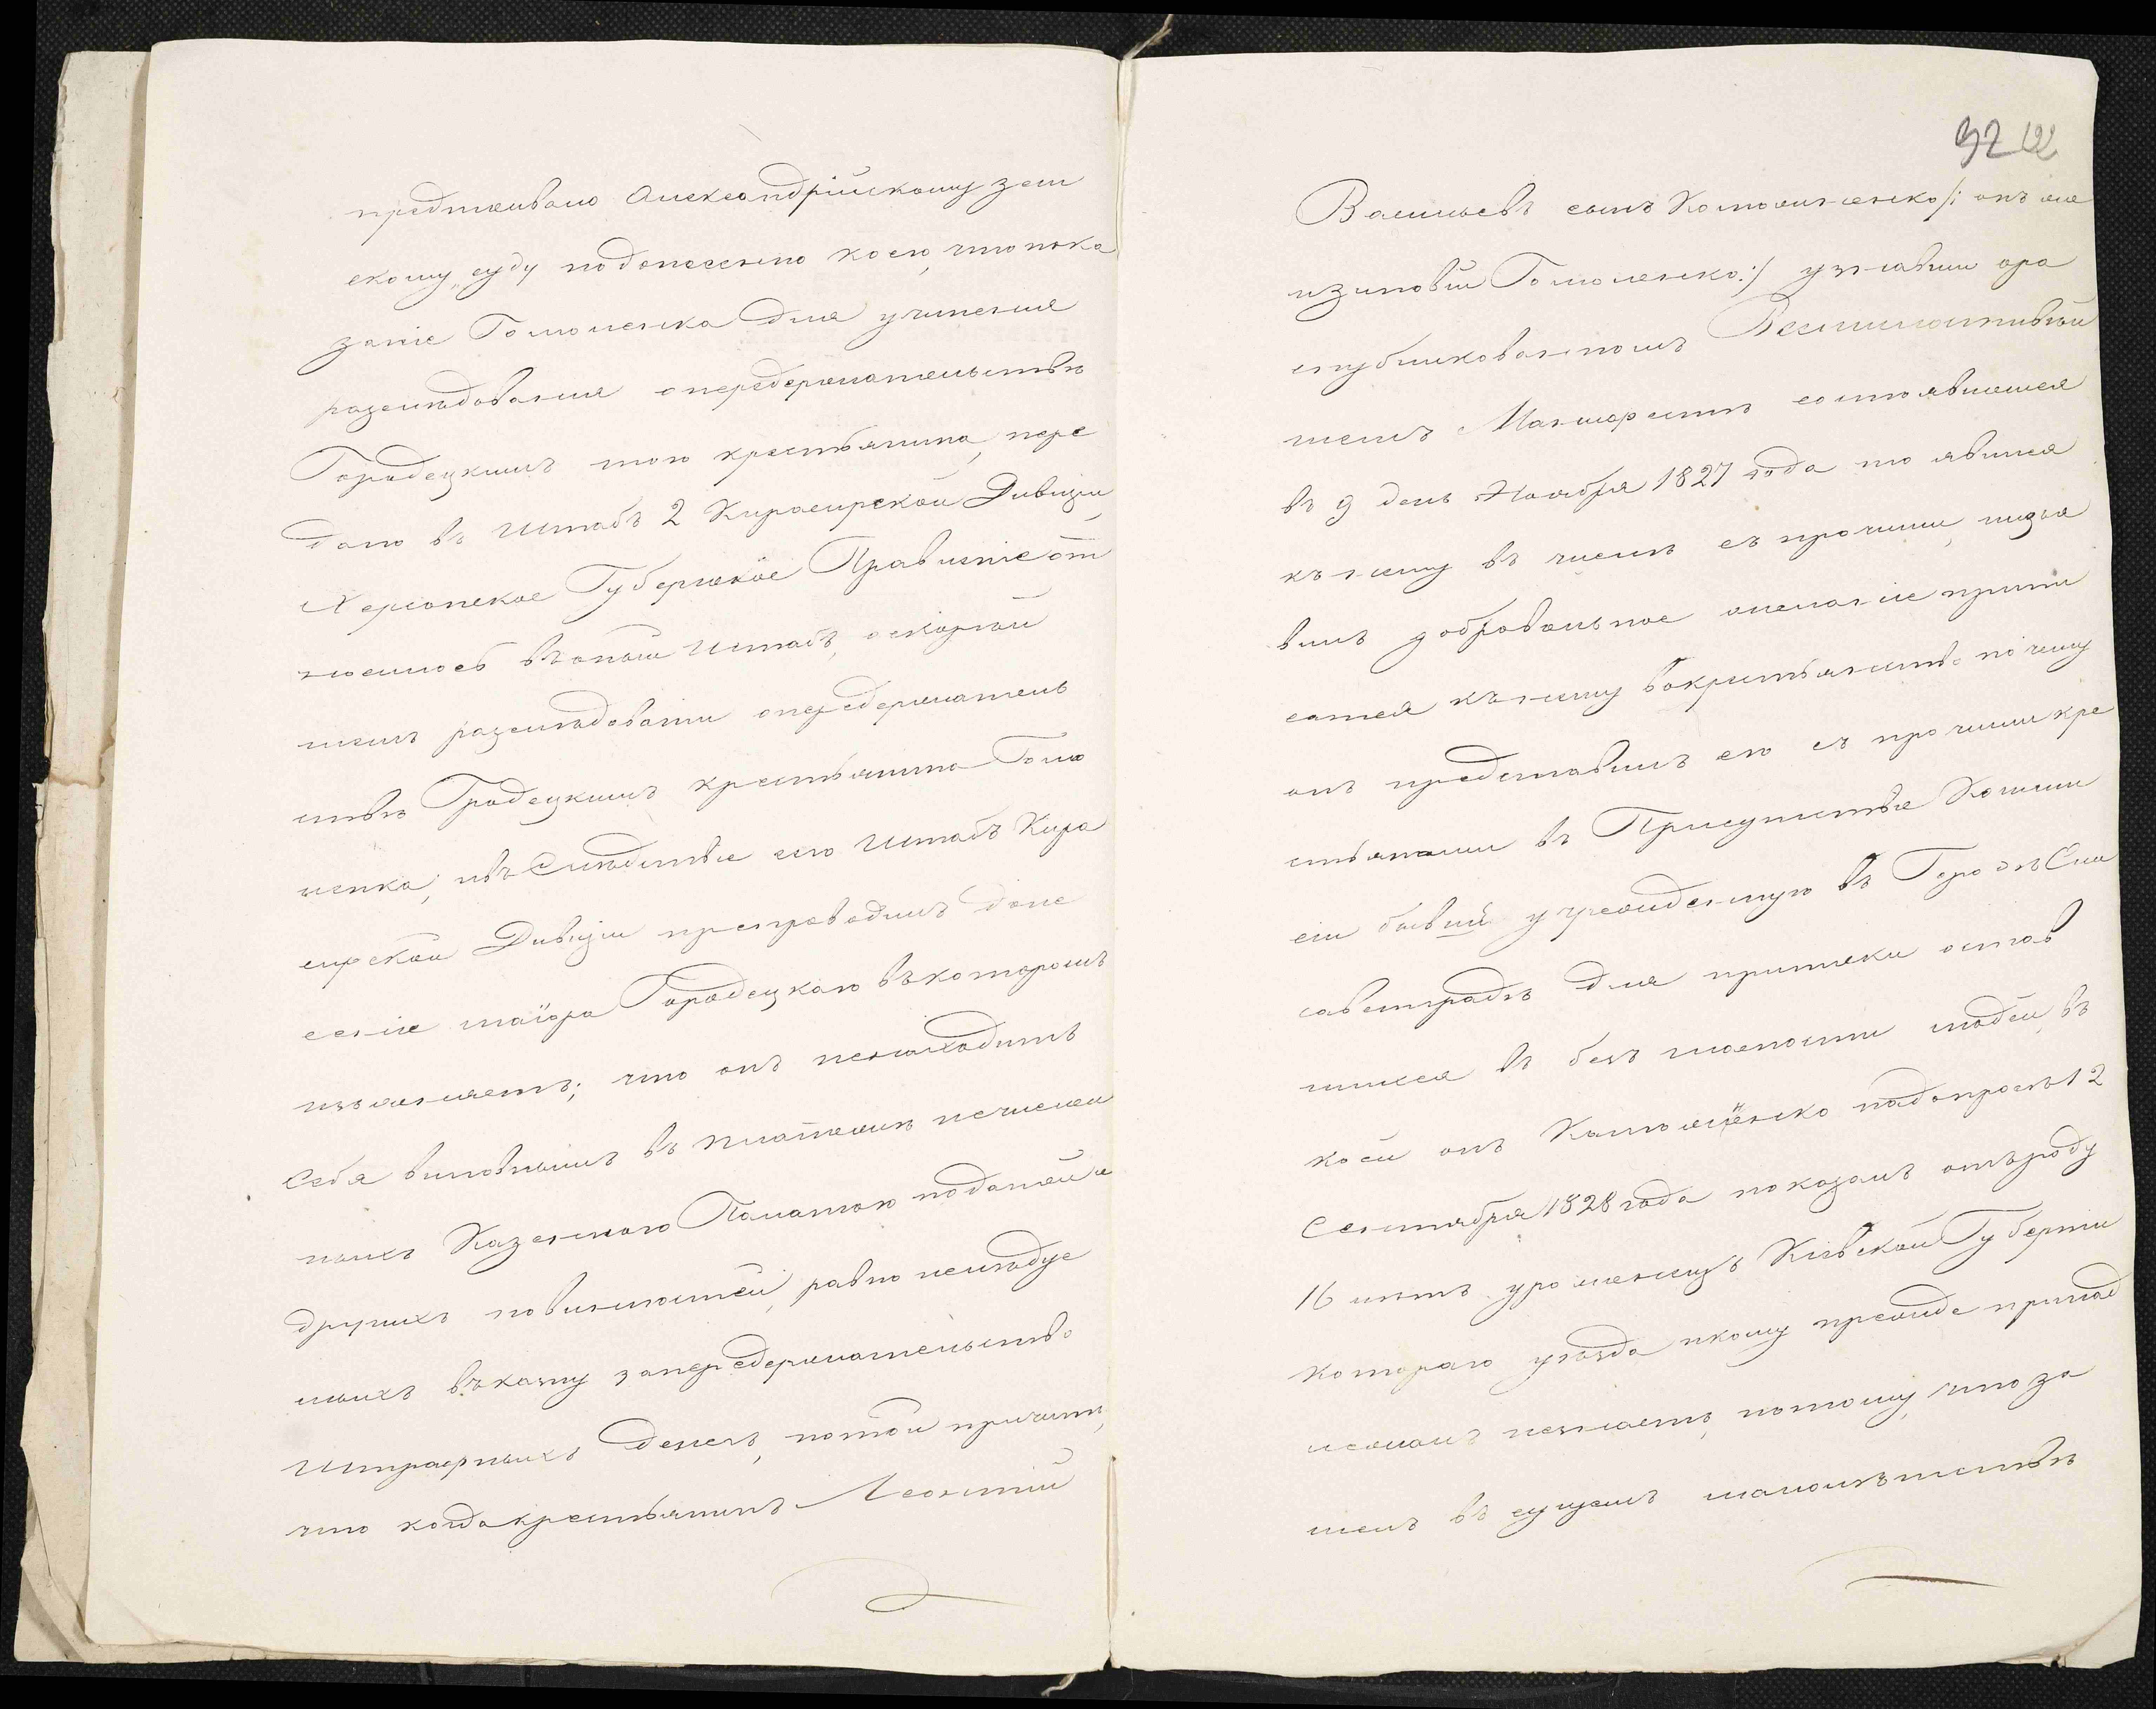 предписывало Александрійскому зем
скому суду подонесенію коего, что пока
заніе Гомоленка для учиненія
разслѣдованія опередержательствѣ
Городецкимъ того крестьянина, пере
дано въ Штабъ 2 Кирасирской Дивизіи,
Херсонское Губернское Правленіе от
носилось въ оный Штабъ, о скорѣй
шемъ разслѣдованіи опередержатель
ствѣ Градецкимъ крестьянина Гомо
ленка; и въ слѣдствіе сего Штабъ Кира
сирской Дивизіи препроводилъ доне
сеніе маіора Городецкаго въ которомъ
изъясняетъ; что онъ ненаходитъ
себя виновнымъ въ платежѣ исчислен
ныхъ Казенною Палатою податей и
другихъ повинностей, равно неслѣдуе
мыхъ въ казну запередержательство
штрафныхъ денегъ, потой причинѣ,
что когда крестьянинъ Леонтій
32
Васильевъ сынъ Комоличенко /: онъ же
изиповій Гомоленко:/ узнавши ора
спубликованномъ Всемилостивѣй
шемъ Манифестѣ состоявшемся
въ 9 день Ноября 1827 года то явился
къ нему въ числѣ съ прочими, и изъя
вилъ добровольное желаніе припи
саться къ нему вокрестьянство почему
онъ представилъ его съ прочими кре
стьянами въ Присутствіе Комми
сіи бывшей учрежденную въ Городѣ Ели
саветградѣ для приписки остав
шихся въ безгласности людей, въ
коей онъ Комоличенко надопросѣ 12
Сентября 1828 года показалъ отъ роду
16 лѣтъ уроженецъ Кіевской Губерніи
котораго уѣзда икому прежде принад
лежалъ незнаетъ, потому, что за
шелъ въ сущемъ малолѣтствѣ